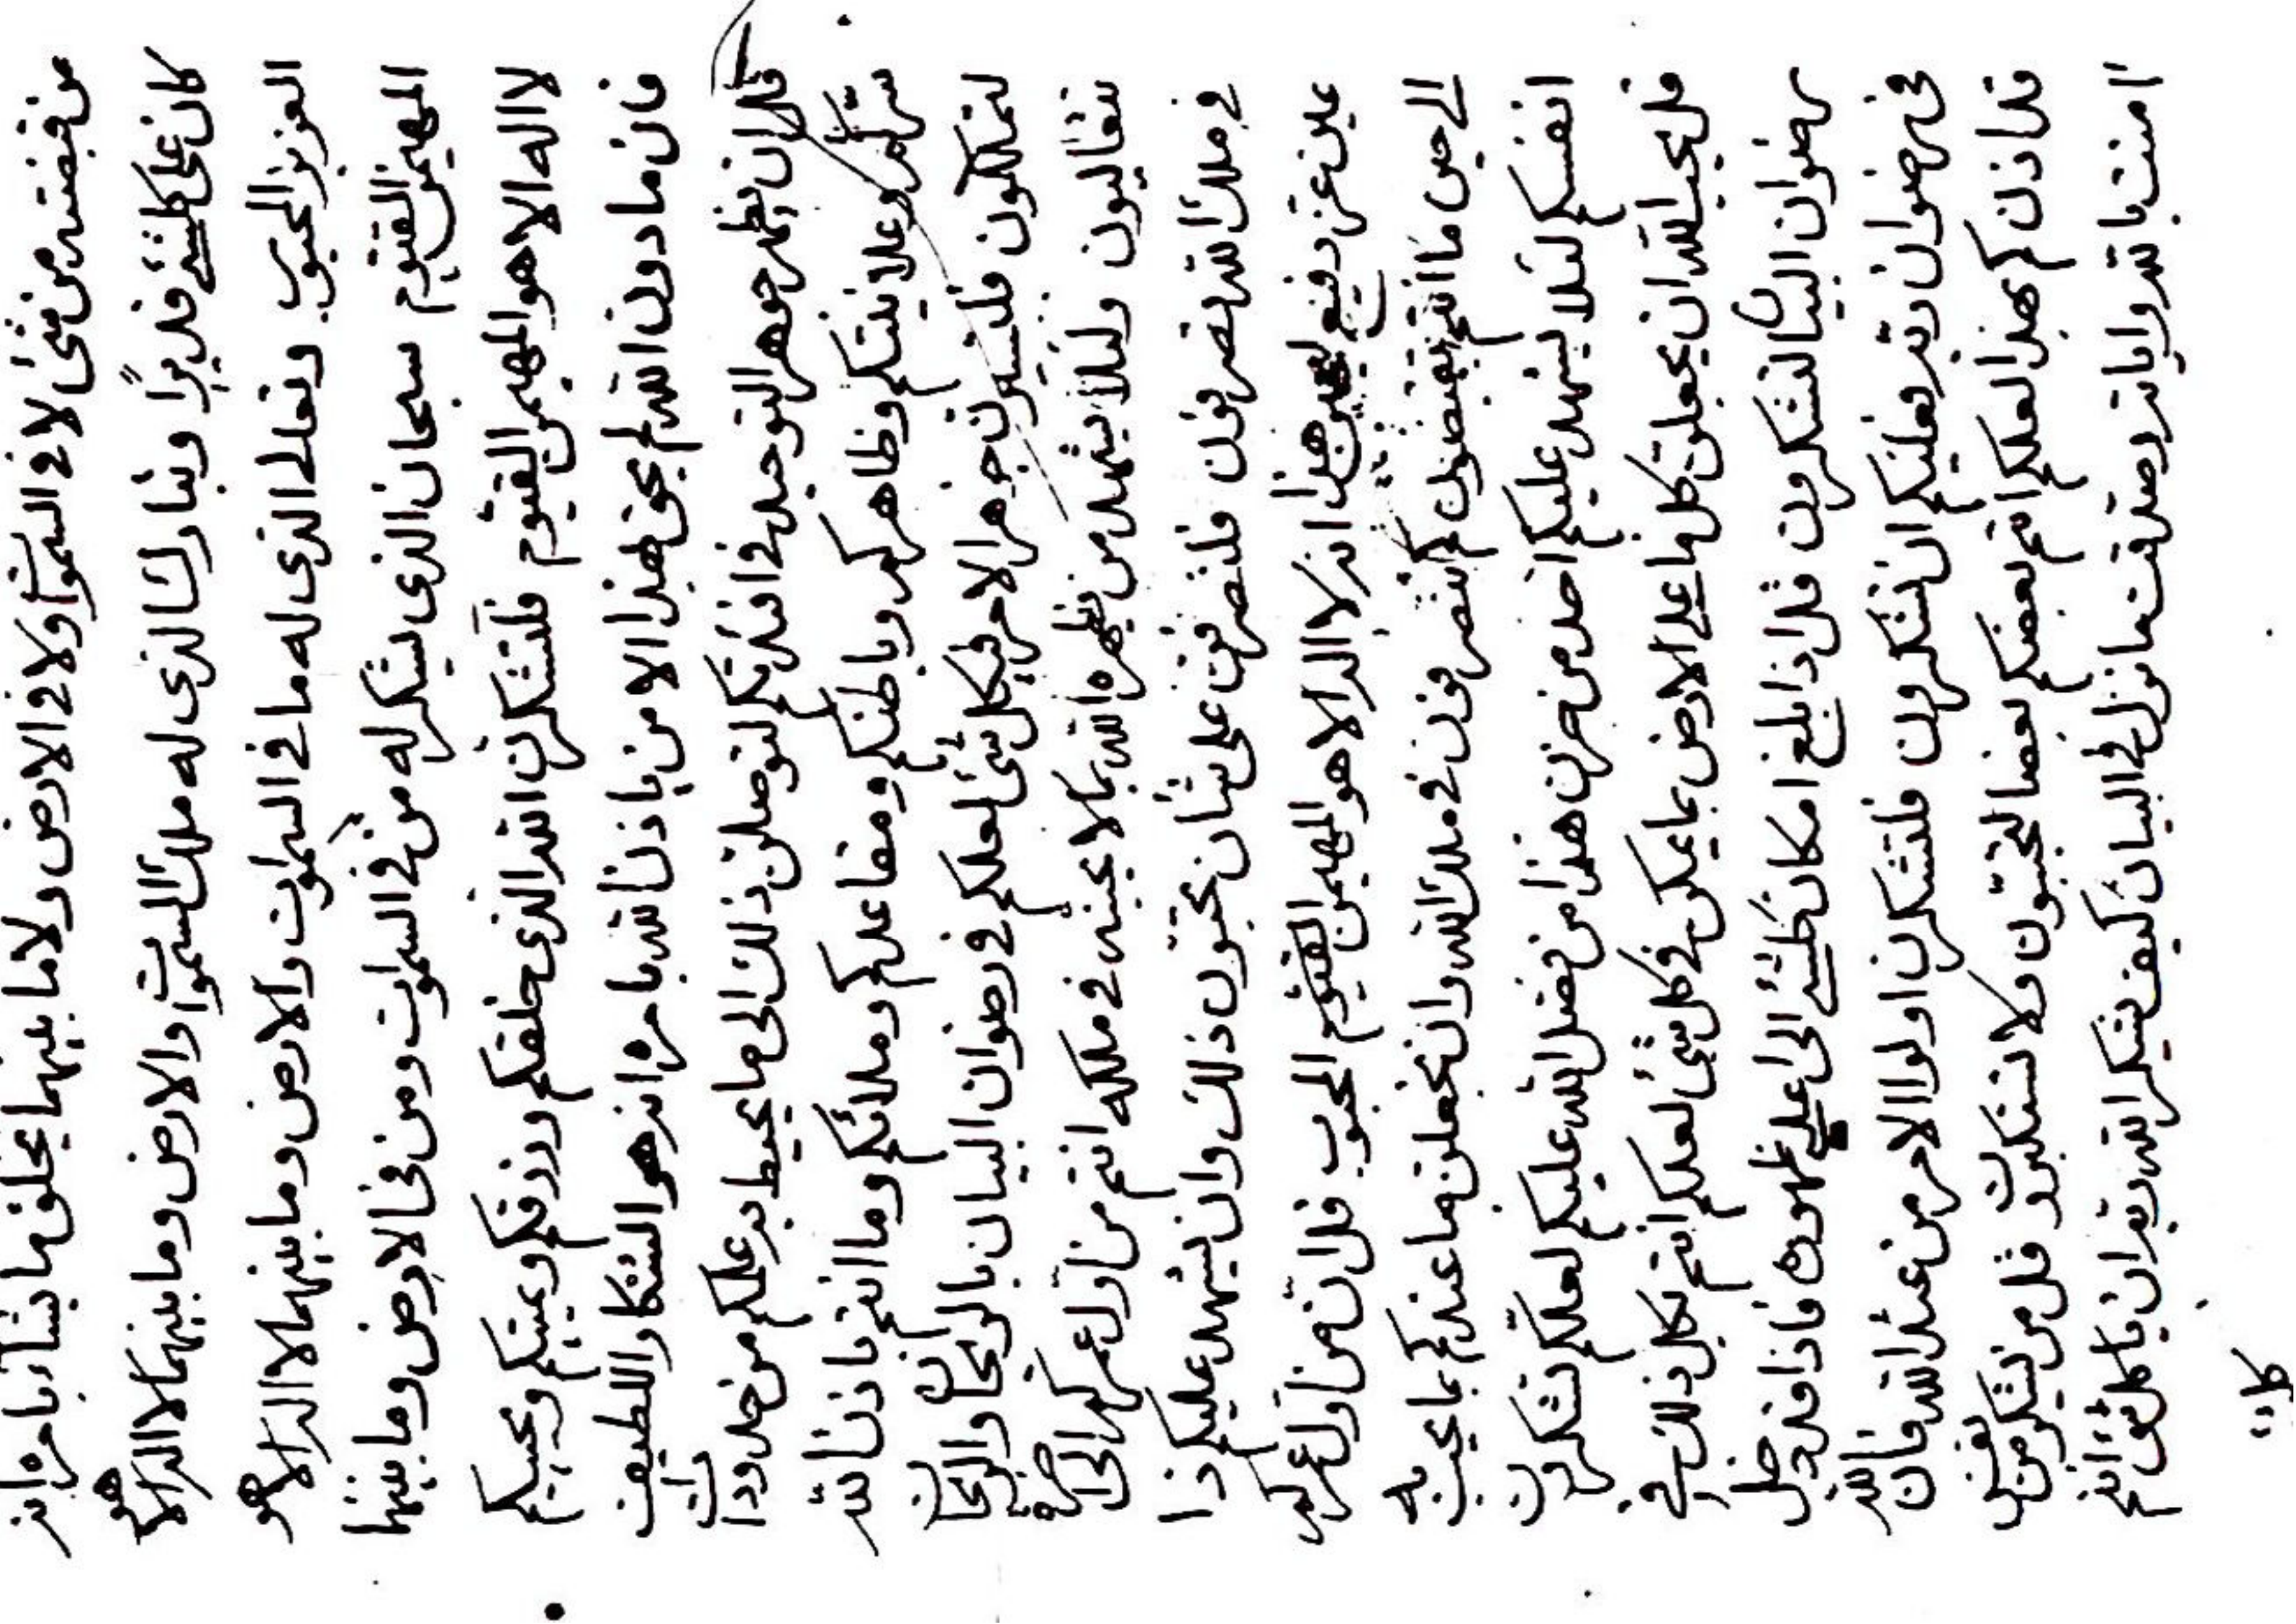 من قبضته من شئ لا فی السموات ولا فی الارض ولا ما بینهما یخلق ما یشاء بامره انه
کان علی کلشئ قدیرا وتبارک الذی له ملک السموات والارض وما بینهما لا اله الا هو
العزیز المحبوب وتعالی الذی له ما فی السموات والارض وما بینهما لا اله الا هو
المهیمن القیوم سبحان الذی یشکر له من فی السموات ومن فی الارض وما بینهما
لا اله الا هو المهیمن القیوم فلتشکرن الله الذی خلقکم ورزقکم ویمیتکم ویحییکم
فان ما دون الله لم یحق هذا الا من باذن الله بامره انه هو الشکار اللطیف
قل ان یظهر جوهر التوحید فی افئدتکم لتوصلن ذلک الی ما یحیط به علمکم من حدودات
سرکم وعلانیتکم وظاهرکم وباطنکم ومقاعدکم وملائکم وما انتم باذن الله
لتملکون فلتسیرن جوهر الامر فی کل شئ لعلکم فی رضوان البیان بالریحان والریحان
تتعالیون ولئلا یشهد من یظهره الله بما لا یحبنه فی ملکه انتم من اول عمرکم الی اخره
فی ملک الله تصرفون فلتصرفن علی شأن تحبون ذلک وان یشهد علیکم ذا
عین عز رفیع هذا انه لا اله الا هو المهیمن القیوم المحبوب قل ان من اول عمرکم
الی حین ما انتم تقبضون لم تصرفون فی ملک الله وان تجعلن ما عندکم بما یحب به
انفسکم لئلا یشهد علیکم احد من حزن هذا من فضل الله علیکم لعلکم تشکرون
قل یحب الله ان یجعلن کل ما علی الارض بما یمکن فی کل شئ لعلکم انتم بکل ذلک فی
رضوان البیان لتشکرون قل اذا بلغ امکان کلشئ الی اعلی ظهوره فاذا قد دخل
فی رضوان ربه فعلیکم ان تشکرون فلتشکرن اولوا الامر من عند الله فان الله
قد اذن لکم بهذا لعلکم انتم بعضکم بعضا لتحبون ولا تستکبرون قل من یشکر من نفس
امنت بالله وایاته وصدقت ما نزل فی البیان کیف یشکر الله ربه ان یا کلشئ انتم
کل